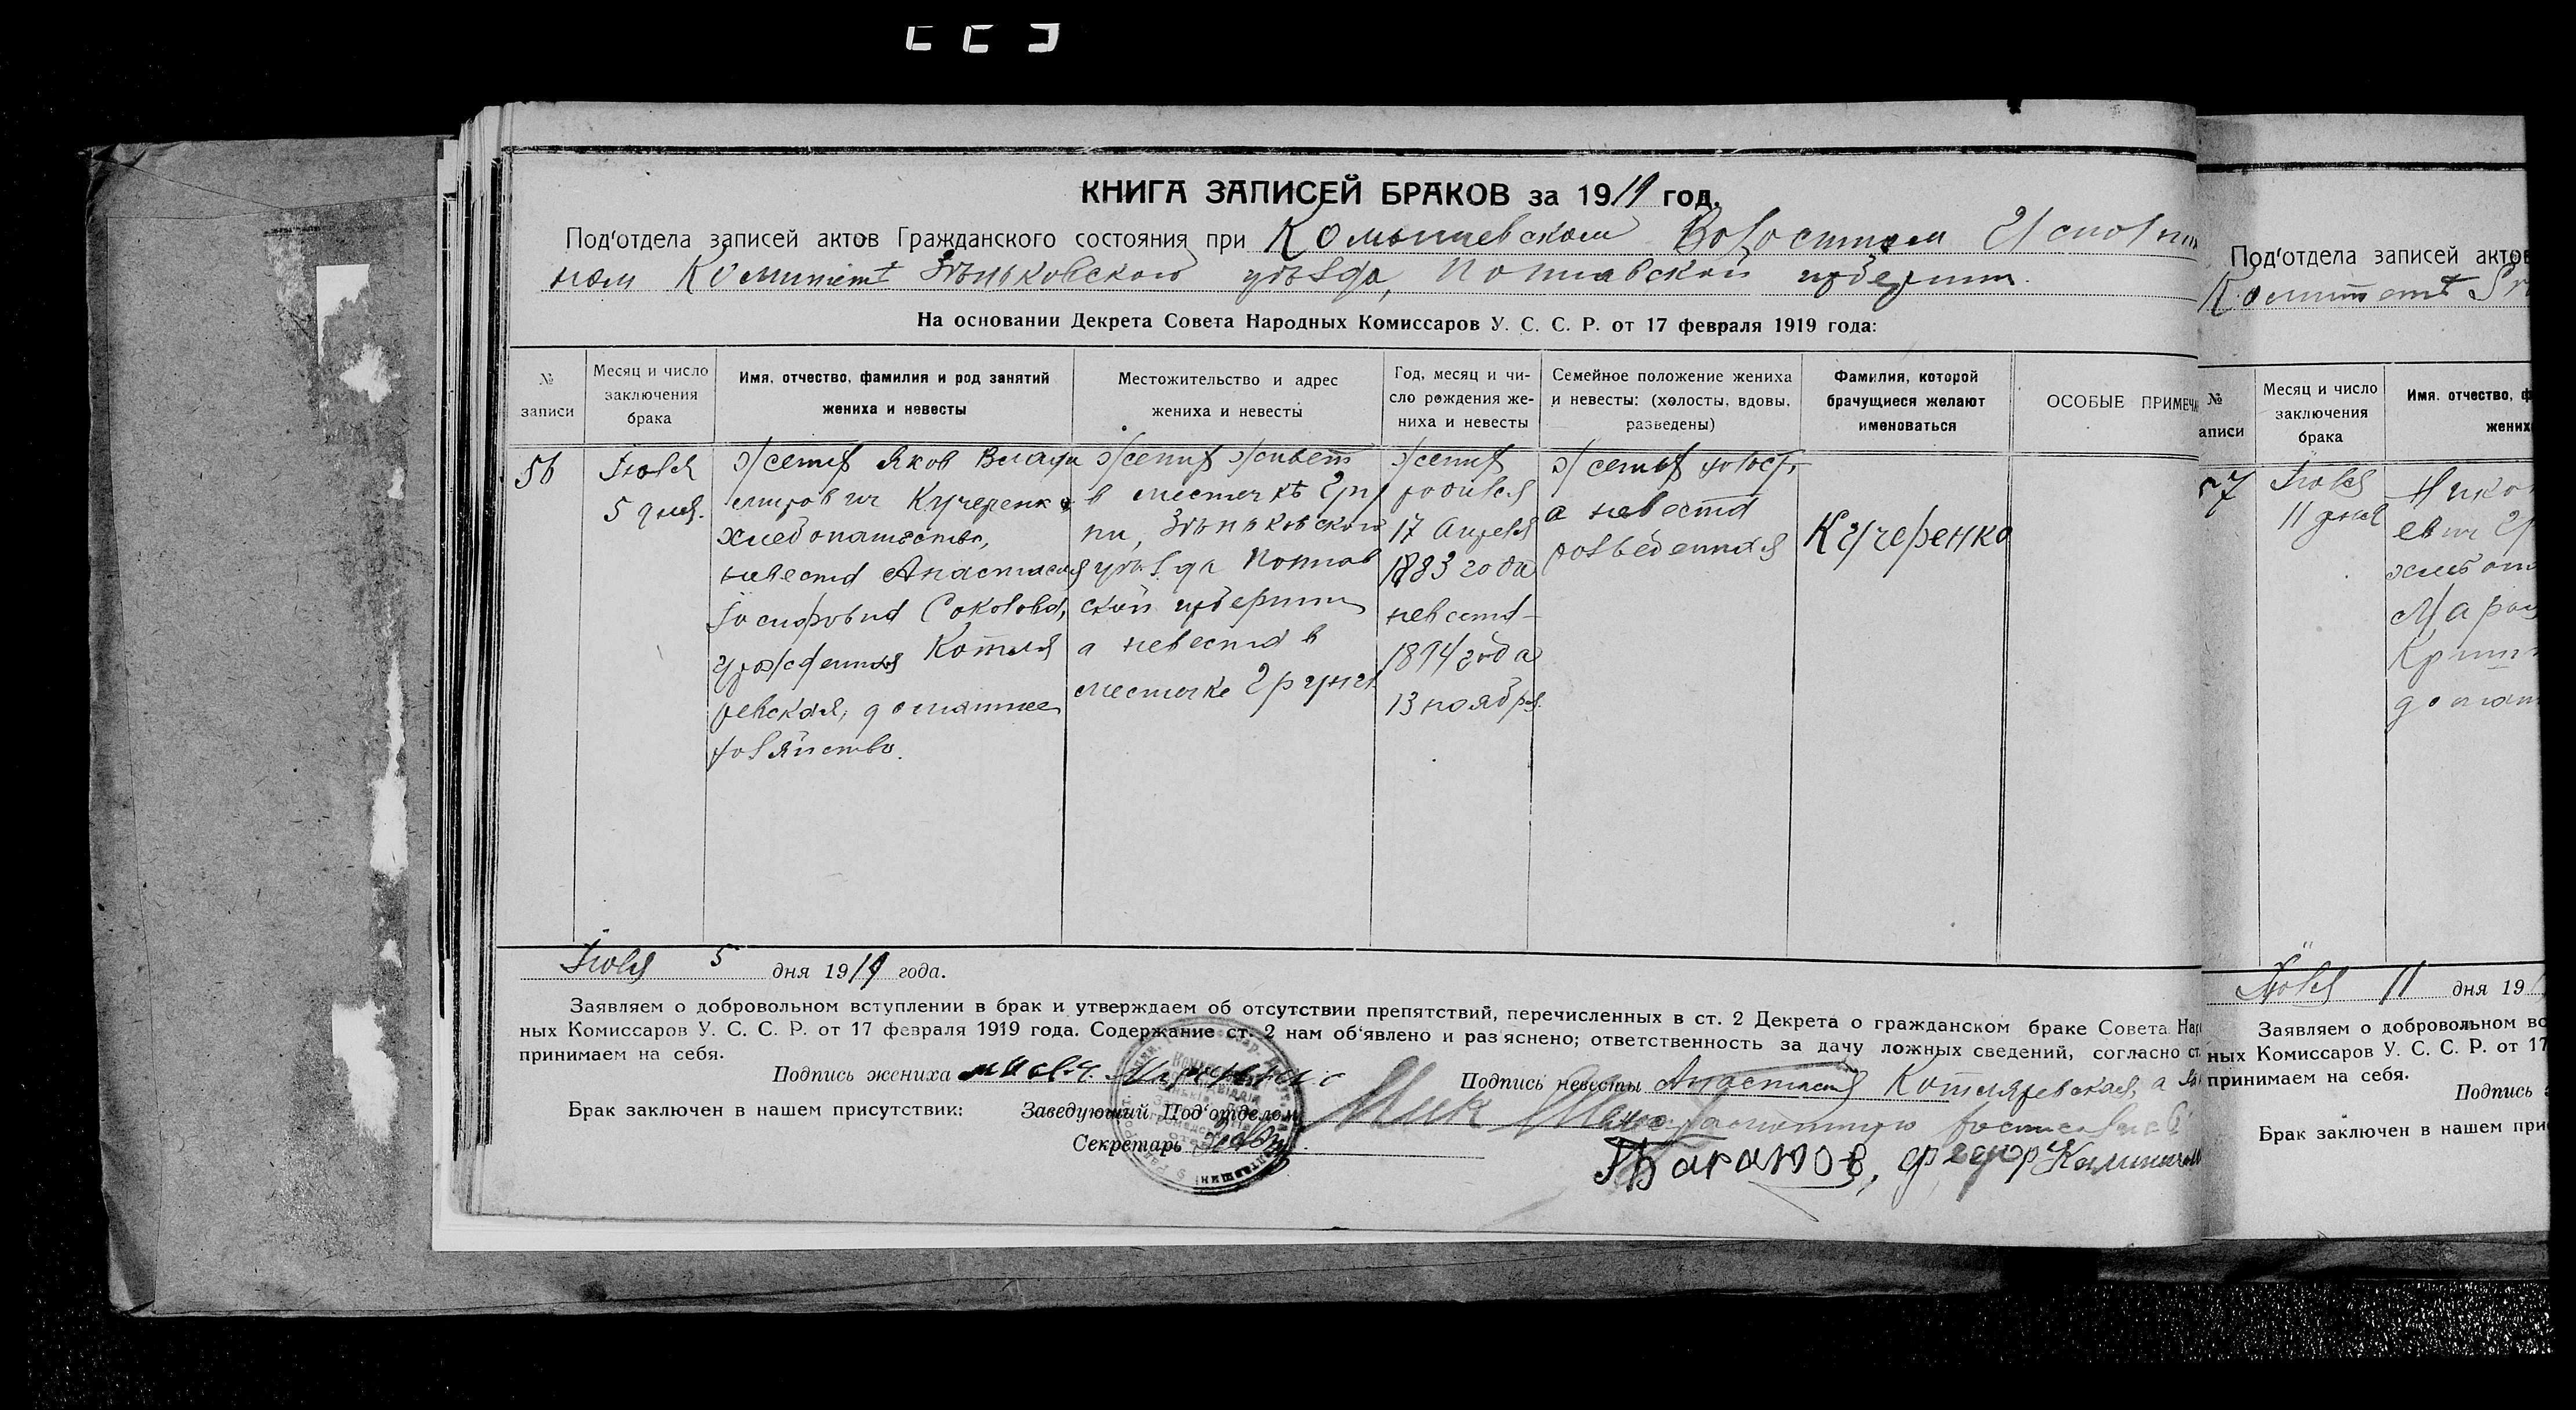 КНИГА ЗАПИСЕЙ БРАКОВ за 1919 год.
Под'отдела записей актов Гражданского состояния при Комышевском Волостном Исполни
ном Комитетѣ Зѣньковского уѣзда, Полтавской губернии.
На основании Декрета Совета Народных Комиссаров У. С. С. Р. от 17 февраля 1919 года:
№ записи
Месяц и число заключения брака
Имя, отчество, фамилия и род занятий жениха и невесты
Местожительство и адрес жениха и невесты
Год, месяц и чи-
сло рождения же-
ниха и невесты
Семейное положение жениха
и невесты: (холосты, вдовы,
разведены)
Фамилия, которой
брачущиеся желают
именоваться
ОСОБЫЕ ПРИМЕЧА
56
Іюля
5 дня.
Жених Яков Влади
мирович Кучеренко
хлебопашество,
невеста Анастасия
Іосифовна Соколова,
урожденная Котля
ревская, домашнее
хозяйство.
Жених живет
в местечкѣ Гру
ни, Зѣньковского
уѣзда Полтав
ской губернии
а невеста в
местечке Груни
Жених
родился
17 Апреля
1883 года
невеста
1894 года
13 ноября.
Жених холост,
а невеста
розведенная
Кучеренко
Іюля 5 дня 1919 года.
Заявляем о добровольном вступлении в брак и утверждаем об отсутствии препятствий, перечисленных в ст. 2 Декрета о гражданском браке Совета Нар
ных Комиссаров У. С. С. Р. от 17 февраля 1919 года. Содержание ст. 2 нам об'явлено и раз яснено; ответственность за дачу ложных сведений, согласно ст.
принимаем на себя.
Подпись жениха
Подпись невесты Анастасия Котляревская, а
Брак заключен в нашем присутствии: Заведующий Под'отделом
Секретарь
Баранов, Федор
Под'отдела записей актов
Комитетѣ
№
аписи
Месяц и число
заключения
брака
Имя. отчество, ф
жених
57
Іюля
11 дня
Нико
евич
Кри
Іюля 11 дня 19
Заявляем о добровольном вс
ных Комиссаров У. С. С. Р. от 17
принимаем на себя.
Подпись
Брак заключен в нашем при